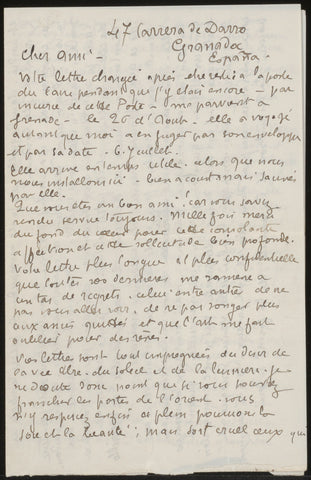 47 Carrera de Darro
Granada
España.
Cher ami -
Votre lettre chargée après
du Caire pendant que j'y étais encore - par
incurie de cette Poste - me parvient à
Grenade - le 26 d'Aout. elle a voyagé
autant que moi a en juger par son enveloppe
et par sa date - 6 Juillet.
Elle arrive en temps utile. alors que nous
nous installons ici - bien a court mais sauvés
par elle.
Que vous êtes un bon ami! car vous savez
rendre service toujours. Mille fois merci
du fond du cœur pour cette consolante
affection et cette sollicitude bien profonde.
Votre lettre plus longue et plus confidentielle
que toutes vos dernières me ramène a
un tas de regrets. celui entre autre de ne
pas vous aller voir. de ne pas songer plus
aux amis quittés et que l'art me fait
oublier pour des rêves.
Vos lettres sont tout impregnées du desir de
la vie libre. du soleil et de la lumière. je
ne doute donc point que si vous pouvez
franchir les portes de l'orient. vous
n'y respiriez enfin a plein poumons la
joie et la beauté; mais sont cruel ceux qui